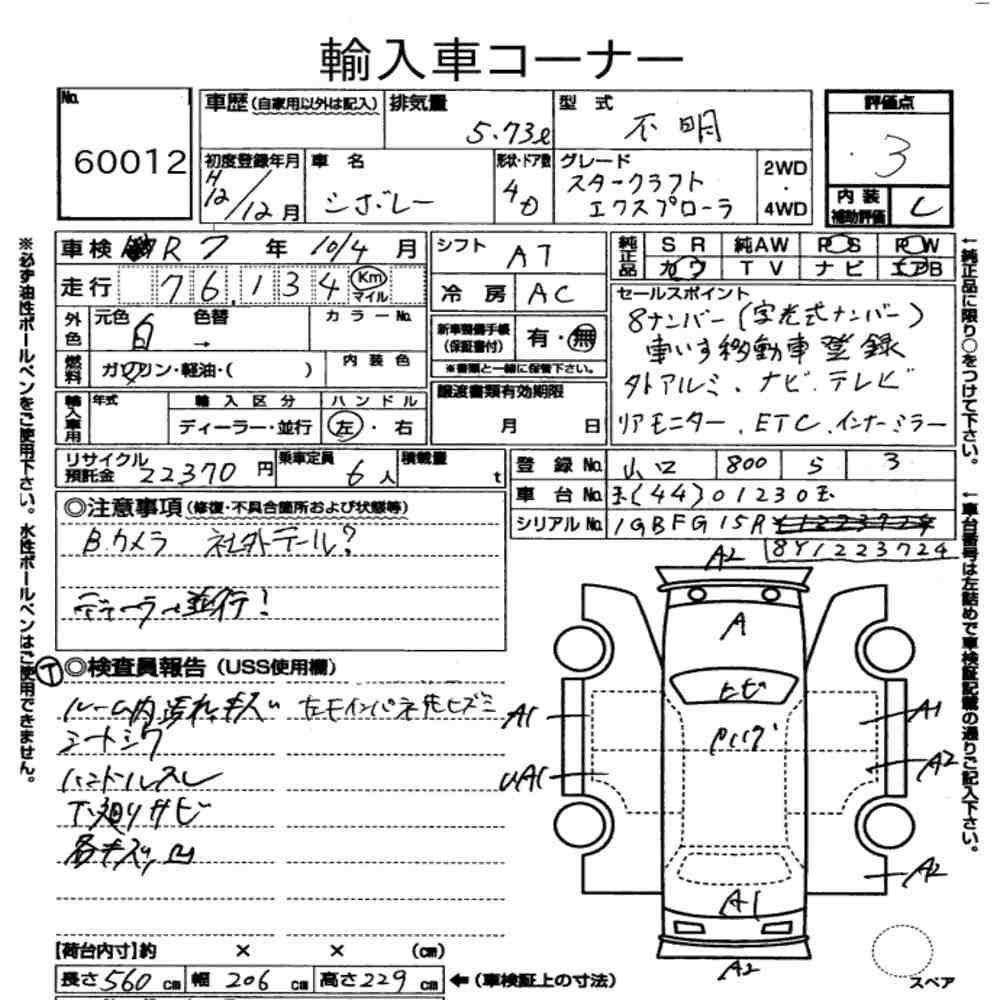 輸入車コーナー
No. 60012
車歴 (自家用以外は記入)
排気量 5.73ℓ
型式 不明
評価点 3
初度登録年月 H12/12月
車名 シボレー
形状・ドア数 4D
グレード スタークラフト エクスプローラ
2WD・4WD
内装補助評価 C
車検 R7年 10/4月
走行 76,134 Km マイル
シフト AT
冷房 AC
純正品 SR 純AW PS PW
カワ TV ナビ エアB
外色 元色 白 色替 → カラーNo.
燃料 ガソリン・軽油・( )
内装色
新車整備手帳(保証書付) 有・無
※書類と一緒に保管下さい。
セールスポイント
8ナンバー(字光式ナンバー)
車いす移動車登録
外アルミ、ナビ、テレビ
リアモニター、ETC、インナーミラー
輸入車用 年式
輸入区分 ディーラー・並行
ハンドル 左・右
譲渡書類有効期限
月 日
リサイクル預託金 22370円
乗車定員 6人
積載量 t
登録No. 山口 800 5 3
車台No. 玉(44)01230玉
シリアルNo. 1GBFG15R
8Y1223724
◎注意事項(修復・不具合箇所および状態等)
B.カメラ 社外テール?
ディーラー→並行!
◎検査員報告 (USS使用欄)
ルーム内汚れ、キズ
シートシワ
ハンドルスレ
下廻りサビ
各キズ、凹
A2
A
ヒビ
A1
A1
A2
UA1
A2
A1
A2
スペア
【荷台内寸】約 × × (cm)
長さ560cm 幅206cm 高さ229cm ←(車検証上の寸法)
※必ず油性ボールペンをご使用下さい。水性ボールペンはご使用できません。
←純正品に限り○をつけて下さい。
←車台番号は左詰めで車検証記載の通りご記入下さい。